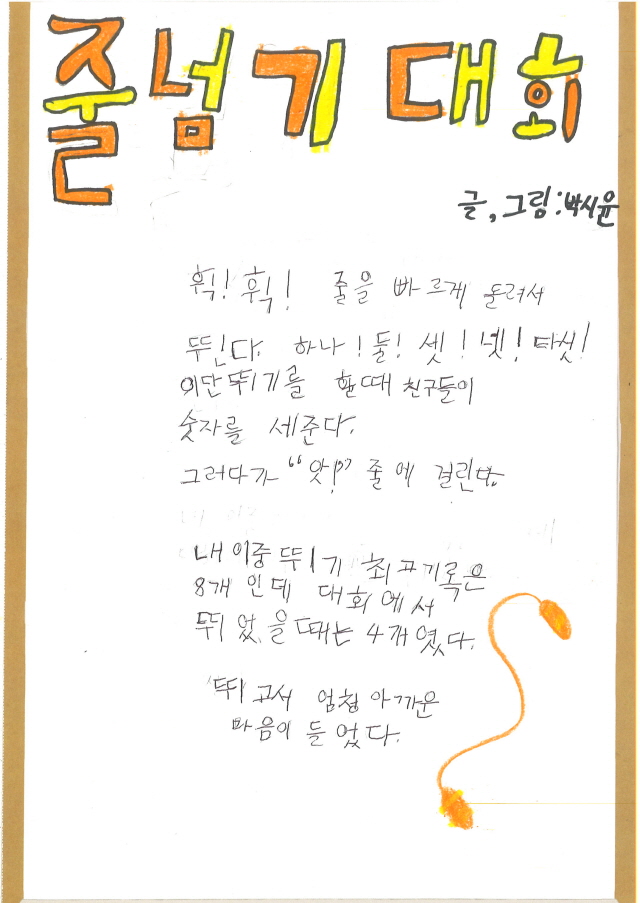 줄넘기 대회
글, 그림:박시윤
휙! 휙! 줄을 빠르게 돌려서
뛴다. 하나! 둘! 셋! 넷! 다섯!
이단뛰기를 할때 친구들이
숫자를 세준다.
그러다가 "앗!" 줄에 걸린다.
내 이중뛰기 최고기록은
8개 인데 대회에서
뛰었을때는 4개였다.
뛰고서 엄청 아까운
마음이 들었다.